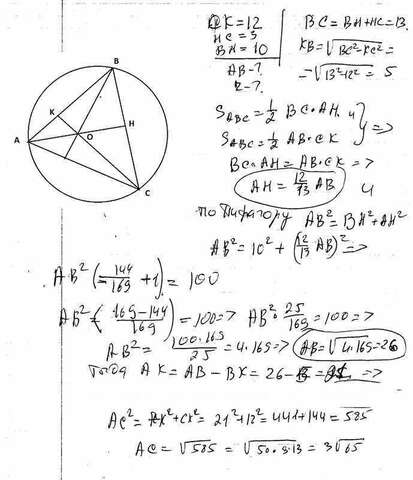 CK = 12
HC = 3
BH = 10
AB - ?
R - ?
BC = BH + HC = 13
KB = √BC² - KC² =
= √13² - 12² = 5
S_ABC = 1/2 BC · AH и
S_ABC = 1/2 AB · CK } =>
BC · AH = AB · CK =>
AH = 12/13 AB и
по Пифагору AB² = BH² + AH²
AB² = 10² + (12/13 AB)² =>
B
K
H
O
A
C
AB² (-144/169 + 1) = 100
AB² · (169 - 144/169) = 100 => AB² · 25/169 = 100 =>
AB² = 100 · 169/25 = 4 · 169 => AB = √4 · 169 = 26
тогда AK = AB - BK = 26 - 5 = 21 =>
AC² = AK² + CK² = 21² + 12² = 441 + 144 = 585
AC = √585 = √ = 3√65